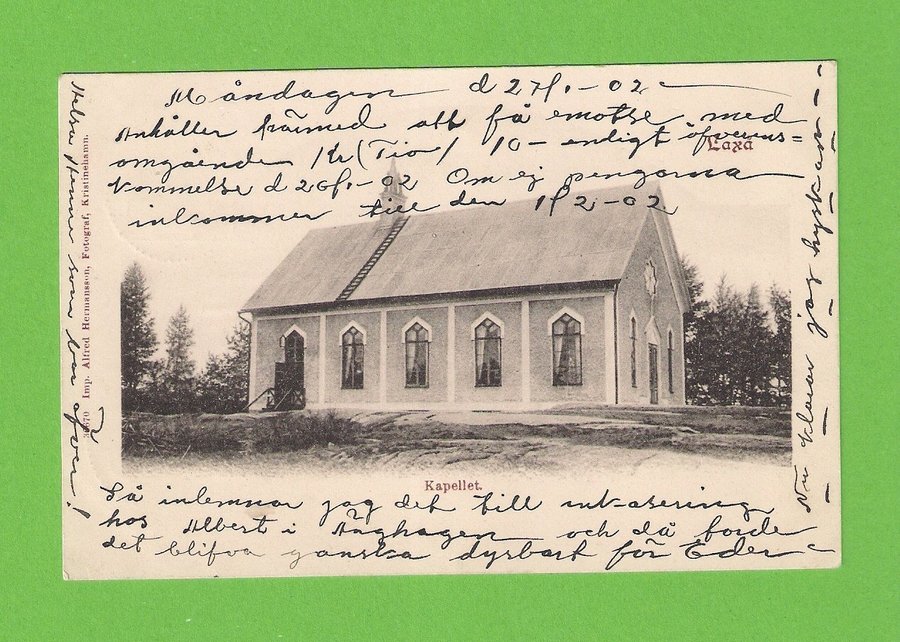 Måndagen d 27/1 - 02
Anhåller härmed att få emotse med
omgående Kr (Tio) 10 - enligt öfverens=
kommelse d 26/1 - 02 Om ej pengarna
inkommer till den 1/2 - 02
Laxå
Kapellet.
Så inlemnar jag det till inkasering
hos Albert i Änghagen och då torde
det blifva ganska dyrbart för Eder
Nu klarar jag hyskan
Helsa Henne som var öfver!
Imp. Alfred Hermansson, Fotograf, Kristinehamn.